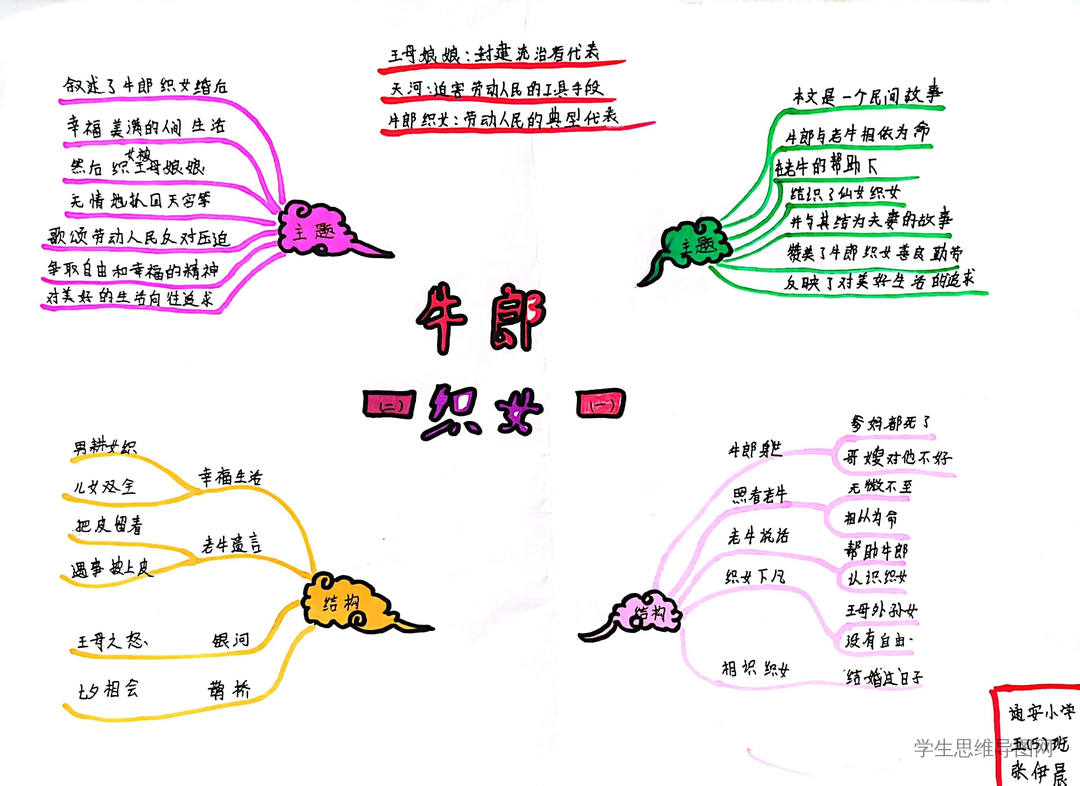 王母娘娘:封建统治者代表
天河:迫害劳动人民的工具手段
牛郎织女:劳动人民的典型代表
叙述了牛郎织女婚后
幸福美满的人间生活
然后织女被王母娘娘
无情地抓回天宫等
歌颂劳动人民反对压迫
争取自由和幸福的精神
对美好的生活向往追求
主题
本文是一个民间故事
牛郎与老牛相依为命
在老牛的帮助下
结识了仙女织女
并与其结为夫妻的故事
赞美了牛郎织女善良勤劳
反映了对美好生活的追求
主题
牛郎
(二)
织女
(一)
男耕女织
儿女双全
幸福生活
把皮留着
遇事披上皮
老牛遗言
王母之怒
银河
七夕相会
鹊桥
结构
牛郎身世
爹妈都死了
哥嫂对他不好
照看老牛
无微不至
相依为命
老牛说话
帮助牛郎
认识织女
织女下凡
王母外孙女
没有自由
相识织女
结婚过日子
结构
通安小学
五(5)班
张伊晨
学生思维导图网